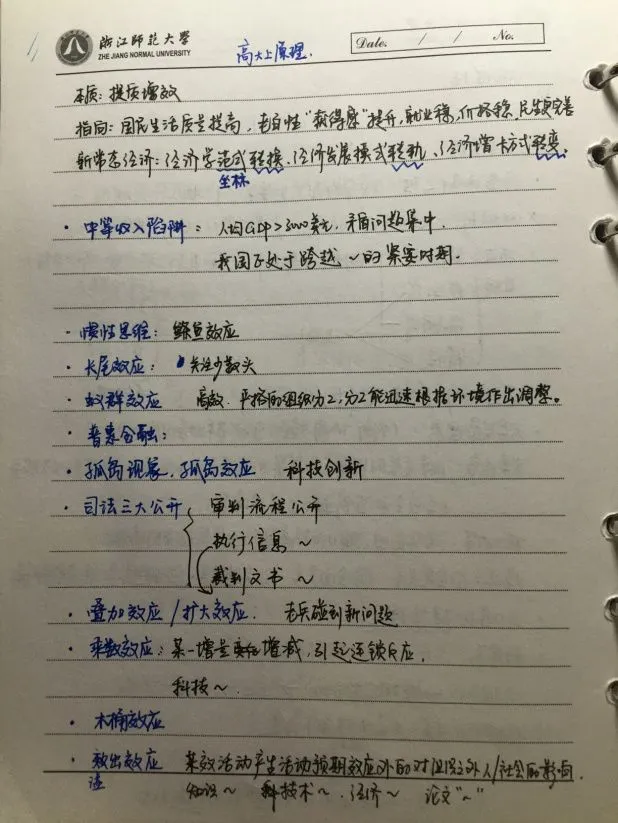 浙江师范大学
ZHE JIANG NORMAL UNIVERSITY
高大上原理.
Date. / / No.
本质: 提质增效
指向: 国民生活质量提高, 老百姓"获得感"提升, 就业稳, 价格稳, 民生更完善
新常态经济: 经济学范式转换、经济发展模式转轨、经济增长方式转变。
坐标
· 中等收入陷阱: 人均GDP>3000美元, 矛盾问题集中.
我国正处于跨越~的紧要时期.
· 惯性思维: 鲸鱼效应
· 长尾效应: 关注少数头
· 蚁群效应 高效. 严格的组织分工, 分工能迅速根据环境作出调整。
· 普惠金融:
· 孤岛现象, 孤岛效应 科技创新
· 司法三大公开 审判流程公开
执行信息 ~
裁判文书 ~
· 叠加效应 / 扩大效应. 老兵碰到新问题
· 乘数效应: 某一增量 增减, 引起连锁反应.
科技~.
· 木桶效应
· 溢出效应 某效活动产生活动预期效应外的对组织之外人/社会的影响.
知识~ 科技术~. 经济~ 论文"~"